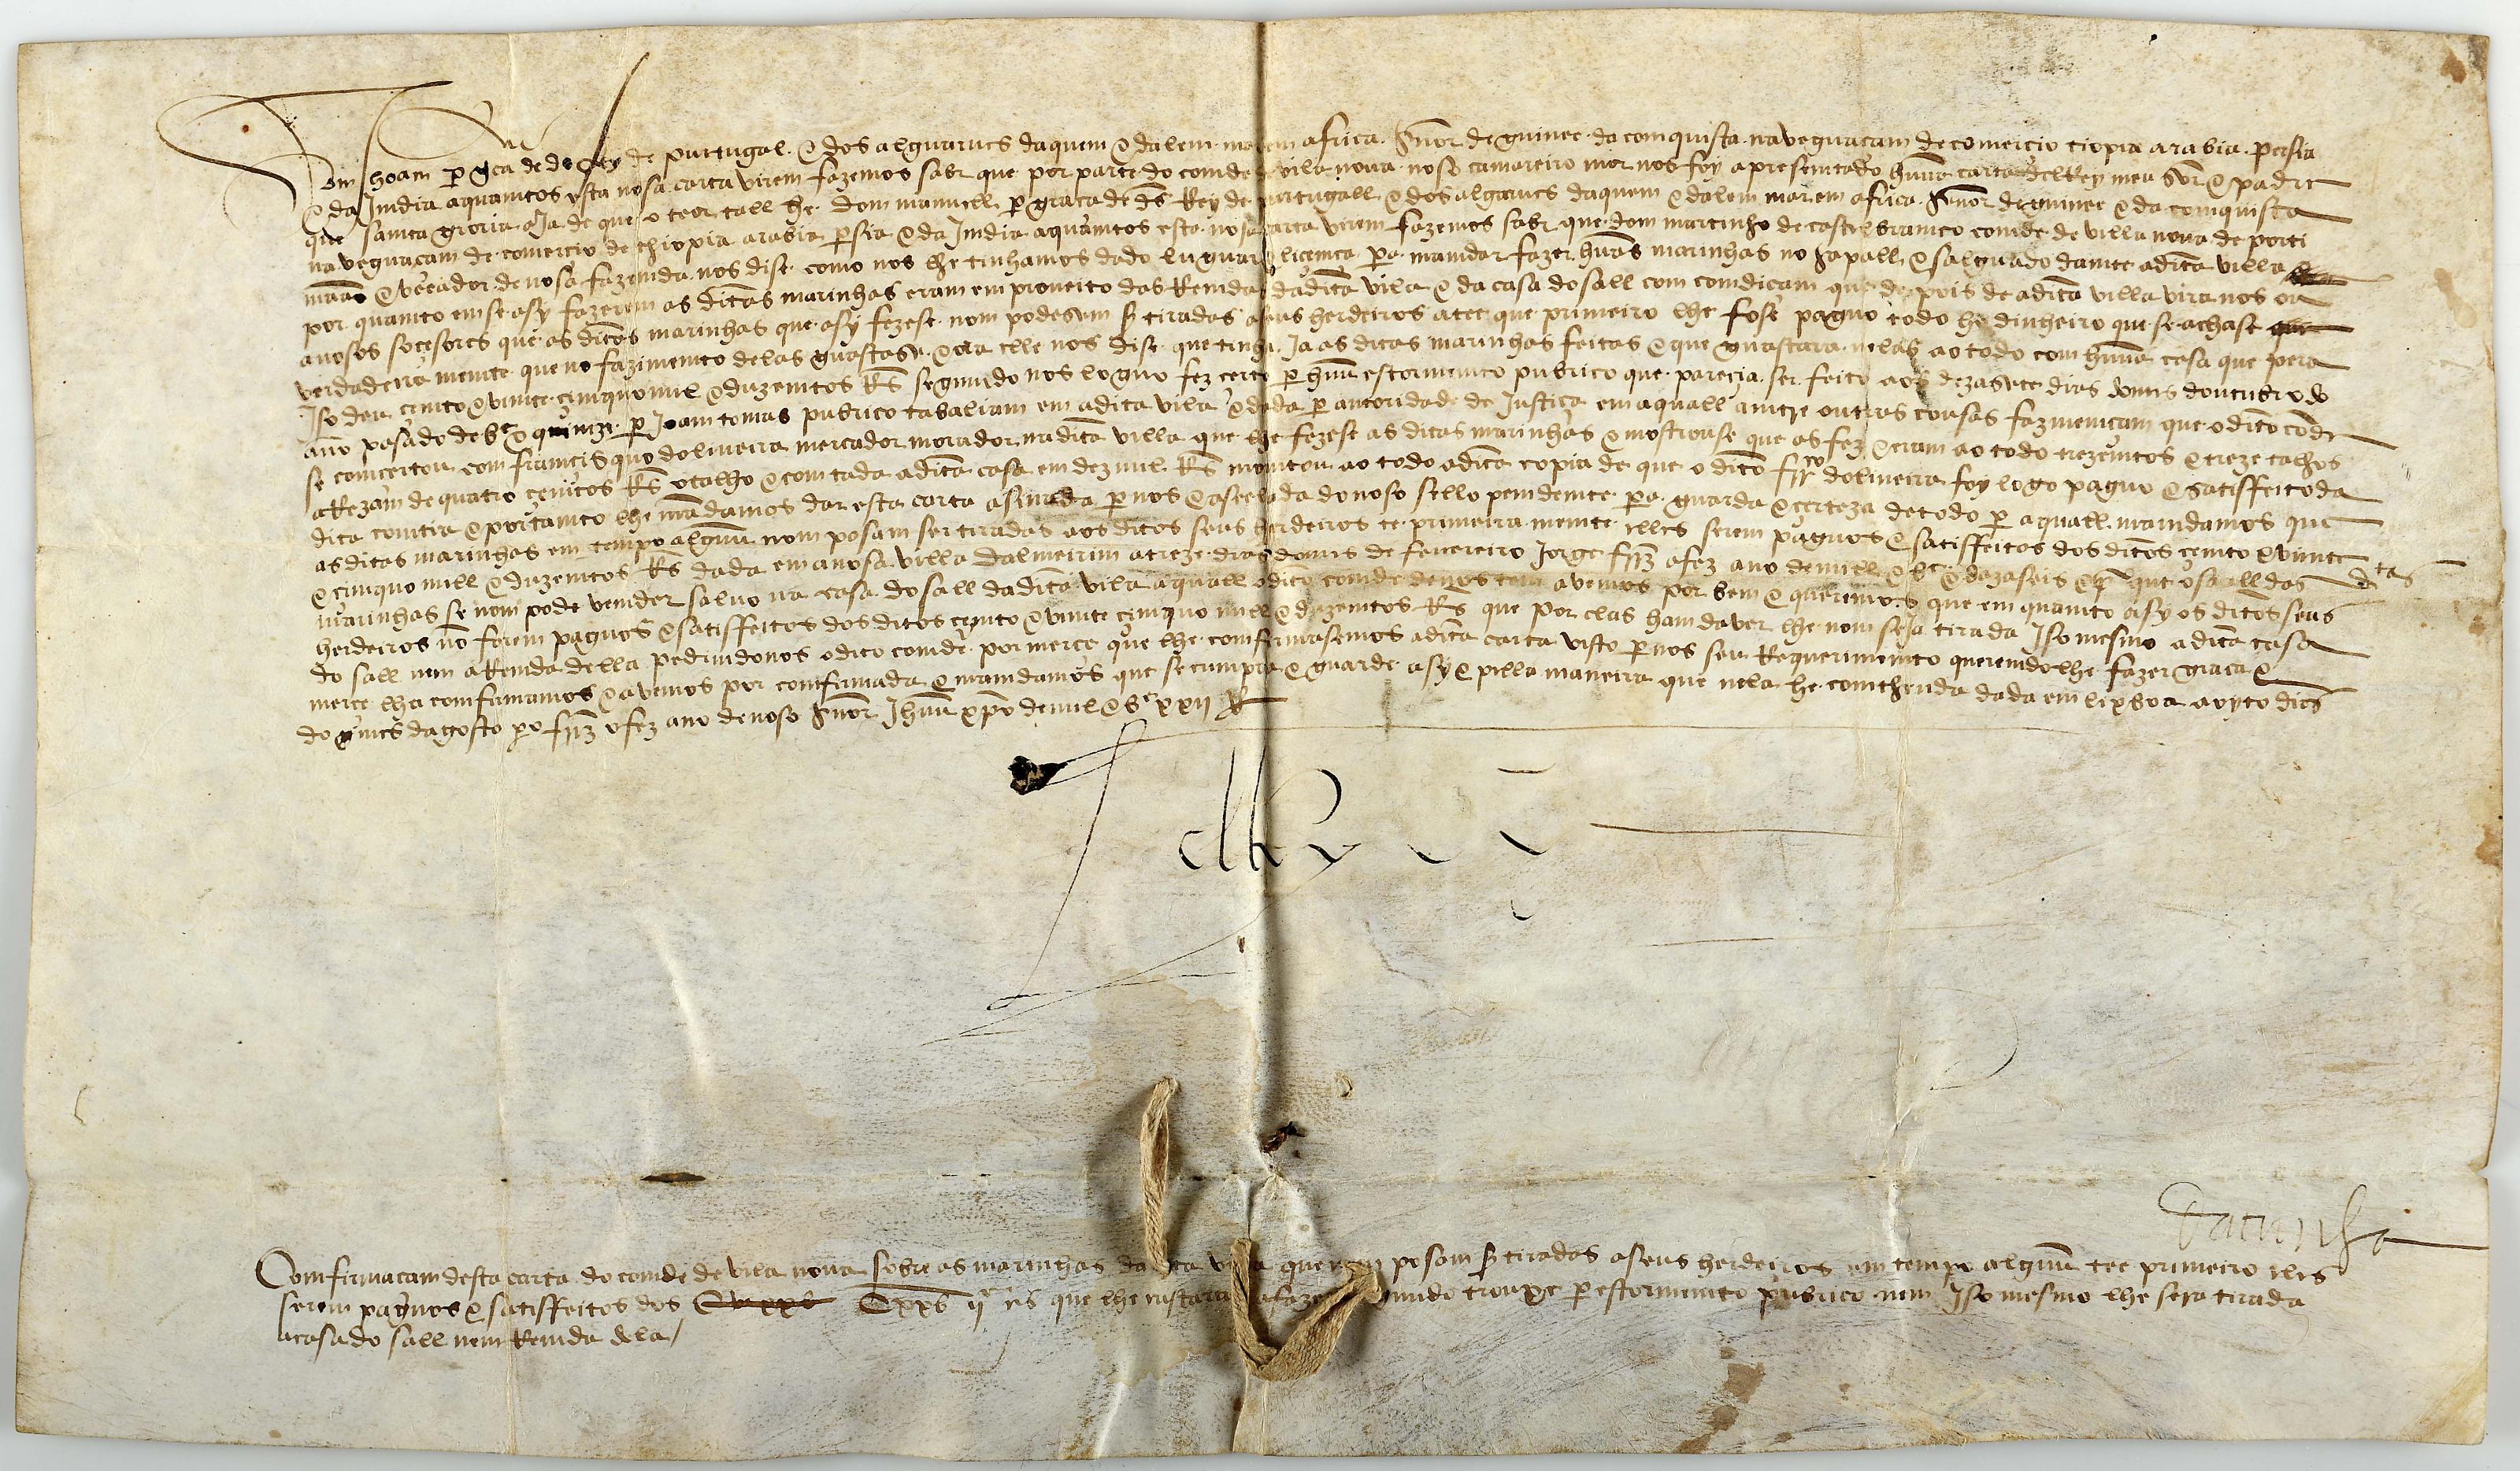 Dom Joham per graça de ds Rey de purtugal & dos alguarves daquem & dalem mar em africa Snor de guinee da comquista naveguaçam de comercio tiopia arabia persia
& da Jmdia aquamtos esta nosa carta virem fazemos sabr que por parte do comde de vila nova noso camareiro mor nos foy apresemtado huũa carta delRey meu sor & padre
que samta groria aJa de que o teor tall he dom manuell per graça de ds Rey de purtugall & dos algarves daquem & dalem mar em africa Snor de guinee & da comquista
naveguaçam de comercio de thiopia arabia persia & da Jmdia aquamtos esta nosa carta virem fazemos sabr que dom martinho de castelbramco comde de villa nova de porti
maão & veeador de nosa fazemda nos dise como nos lhe tinhamos dado luguar & licemça pera mamdar fazer huũas marinhas no sapall & salguado damte a dita villa
por quamto em se asy fazerem as ditas marinhas eram em proveito das Remdas da dita vila & da casa do sall com comdiçam que depois de a dita villa vir a nos ou
a nosos socesores que as ditas marinhas que asy fezese nom podesem sr tiradas a seus herdeiros atee que primeiro lhe fose paguo todo ho dinheiro que se achase que
verdadeira memte que no fazimemto delas guastase & ora elle nos dise que tinha Ja as ditas marinhas feitas & que guastara nelas ao todo com huũa casa que pera
Iso deu cemto & vimte cimquo mil & duzemtos Rs segumdo nos loguo fez certo per huũ estormemto pubrico que parecia ser feito aos dezasete dias domes doutubro do
ano pasado de bc & quimze per Joam tomas pubrico tabaliam em a dita vila & dada per autoridade de Justiça em a quall amtre outras cousas faz memçam que o dito comde
se comcertou com framcisquo dolliveira mercador morador na dita villa que lhe fezese as ditas marinhas & mostrouse que as fez & eram ao todo trezemtos & treze talhos
a Rezam de quatro cemtos Rs o talho & com toda a dita casa em dez mil Rs momtou ao todo a dita copia de que o dito frco doliveira foy logo paguo & satisffeito da
dita comtia & portamto lhe mãdamos dar esta carta asinada per nos & aseelada do noso sello pemdemte pera guarda & certeza de todo per a quall mamdamos que
as ditas marinhas em tempo alguũ nom posam ser tiradas aos ditos seus herdeiros te primeira memte elles serem paguos & satisffeitos dos ditos cemto & vimte
& cimquo mill & duzemtos Rs dada em a nosa villa dalmeirim a treze dias domes de fevereiro Jorge frz a fez ano de mill & bc & dezaseis & por que o sall das ditas
marinhas se nom pode vemder salvo na casa do sall da dita vila a quall o dito comde de nos tem avemos por bem & queremos que em quamto asy os ditos seus
herdeiros nõ forem paguos & satisffeitos dos ditos cemto & vimte cimquo mill & duzemtos Rs que por elas ham daver lhe nom seja tirada Iso mesmo a dita casa
do sall nem a Remda della pedimdonos o dito comde por merce que lhe comfirmasemos a dita carta visto per nos seu Requerimemto queremdolhe fazer graça &
merce lha comfirmamos & avemos por comfirmada & mamdamos que se cumpra & guarde asy & pella maneira que nela he comtheuda dada em lixboa a oyto dias
do mes dagosto po frz o fez ano de noso Snor Jhuũ xpo de mil & bc xxij
elRey
dacunha
Comfirmaçam desta carta do comde de vila nova sobre as marinhas da dita vila que nom posam sr tiradas a seus herdeiros em tempo alguũ tee primeiro eles
serem paguos & satisffeitos dos Cxxb ijc rs que lhe custaram a fazer segumdo trouxe per estormemto pubrico nem Iso mesmo lhe seja tirada
a casa do sall nem Remda dela /